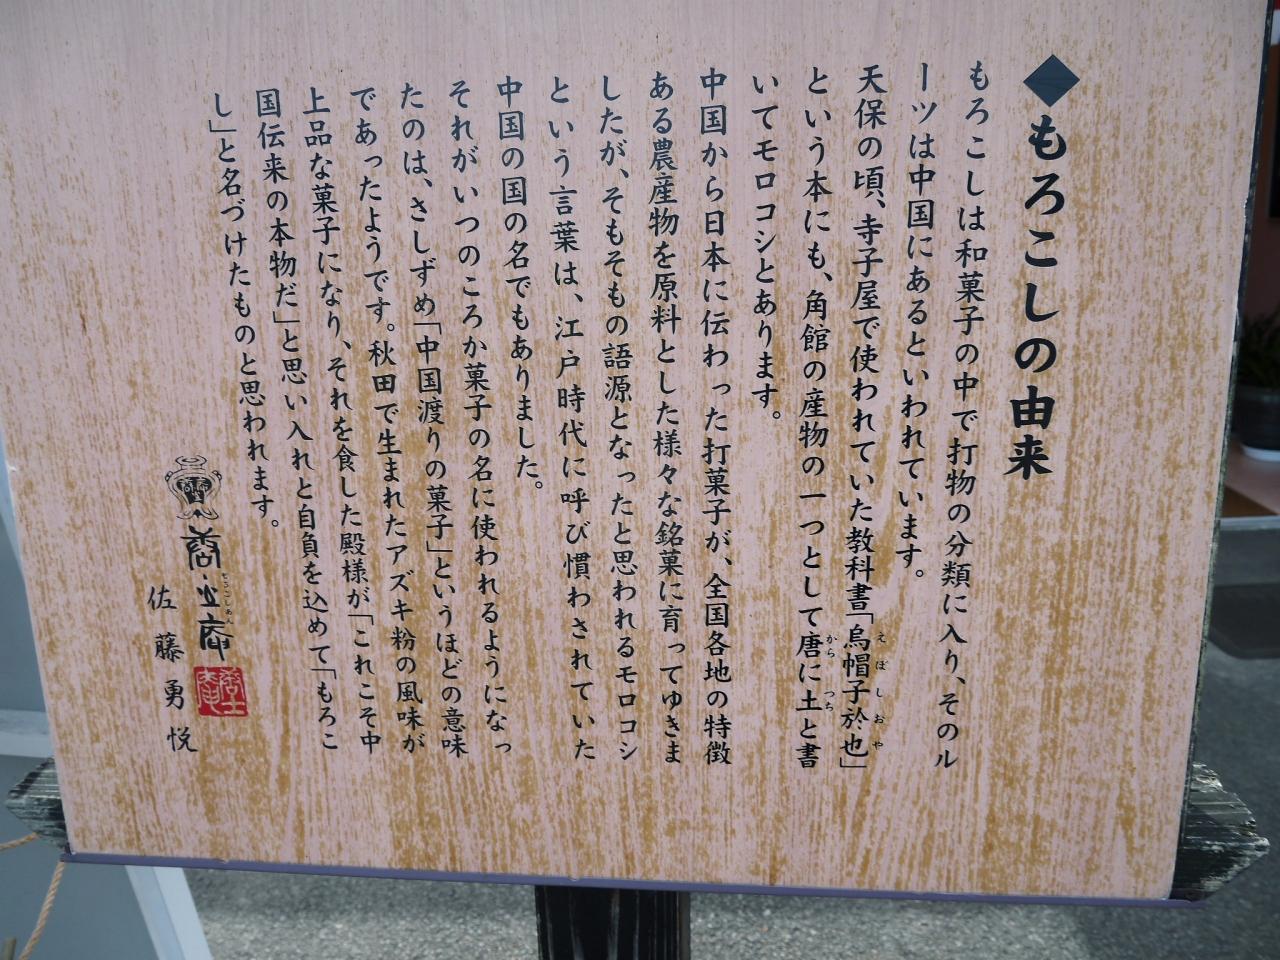 ◆もろこしの由来
もろこしは和菓子の中で打物の分類に入り、そのル
ーツは中国にあるといわれています。
天保の頃、寺子屋で使われていた教科書「烏帽子於也」
えぼしおや
という本にも、角館の産物の一つとして唐に土と書
から つち
いてモロコシとあります。
中国から日本に伝わった打菓子が、全国各地の特徴
ある農産物を原料とした様々な銘菓に育ってゆきま
したが、そもそもの語源となったと思われるモロコシ
という言葉は、江戸時代に呼び慣わされていた
中国の国の名でもありました。
それがいつのころか菓子の名に使われるようになっ
たのは、さしずめ「中国渡りの菓子」というほどの意味
であったようです。秋田で生まれたアズキ粉の風味が
上品な菓子になり、それを食した殿様が「これこそ中
国伝来の本物だ」と思い入れと自負を込めて「もろこ
し」と名づけたものと思われます。
もろこしあん
佐藤勇悦